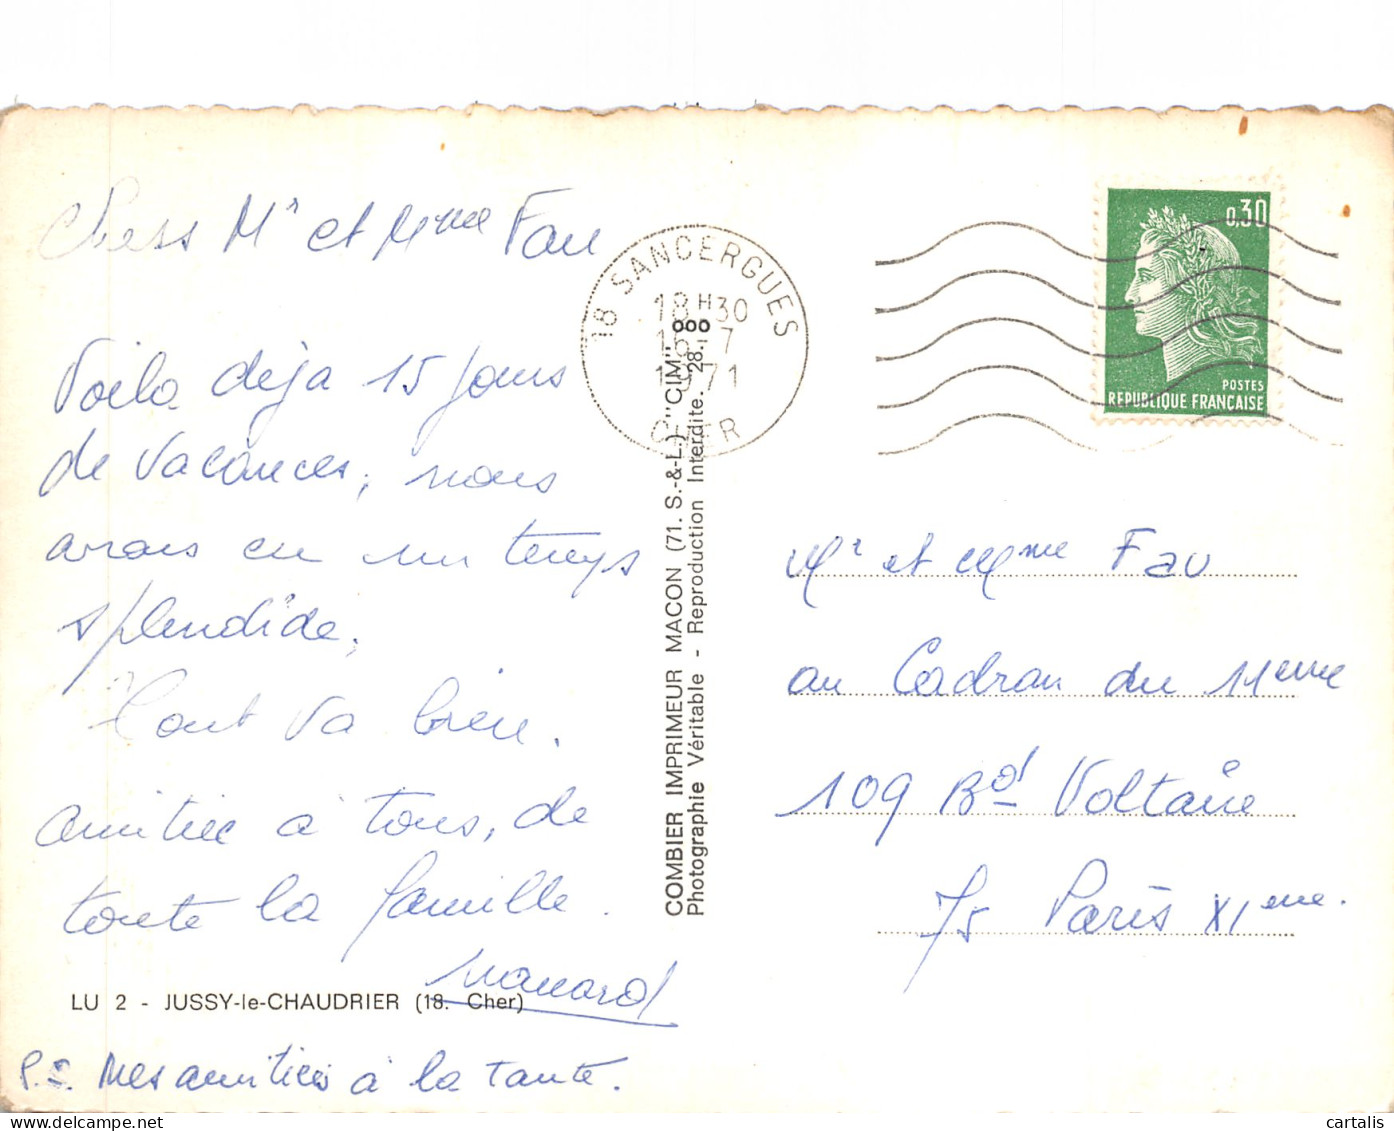 Chers Mr et Mme Fau
Voila déja 15 jours
de vacances, nous
avons eu un temps
splendide,
Tout va bien.
amitiée à tous, de
toute la famille.
P.S. Mes amitiées à la tante.
LU 2 - JUSSY-le-CHAUDRIER (18. Cher)
COMBIER IMPRIMEUR MACON (71. S.-&-L.) "CIM"
Photographie Véritable - Reproduction Interdite. 28.
18 SANCERGUES
18H30
16-7
1971
CHER
0,30
POSTES
REPUBLIQUE FRANCAISE
Mr et Mme Fau
au Cadran du 11eme
109 Bd Voltaire
75 Paris XIeme.
cartalis